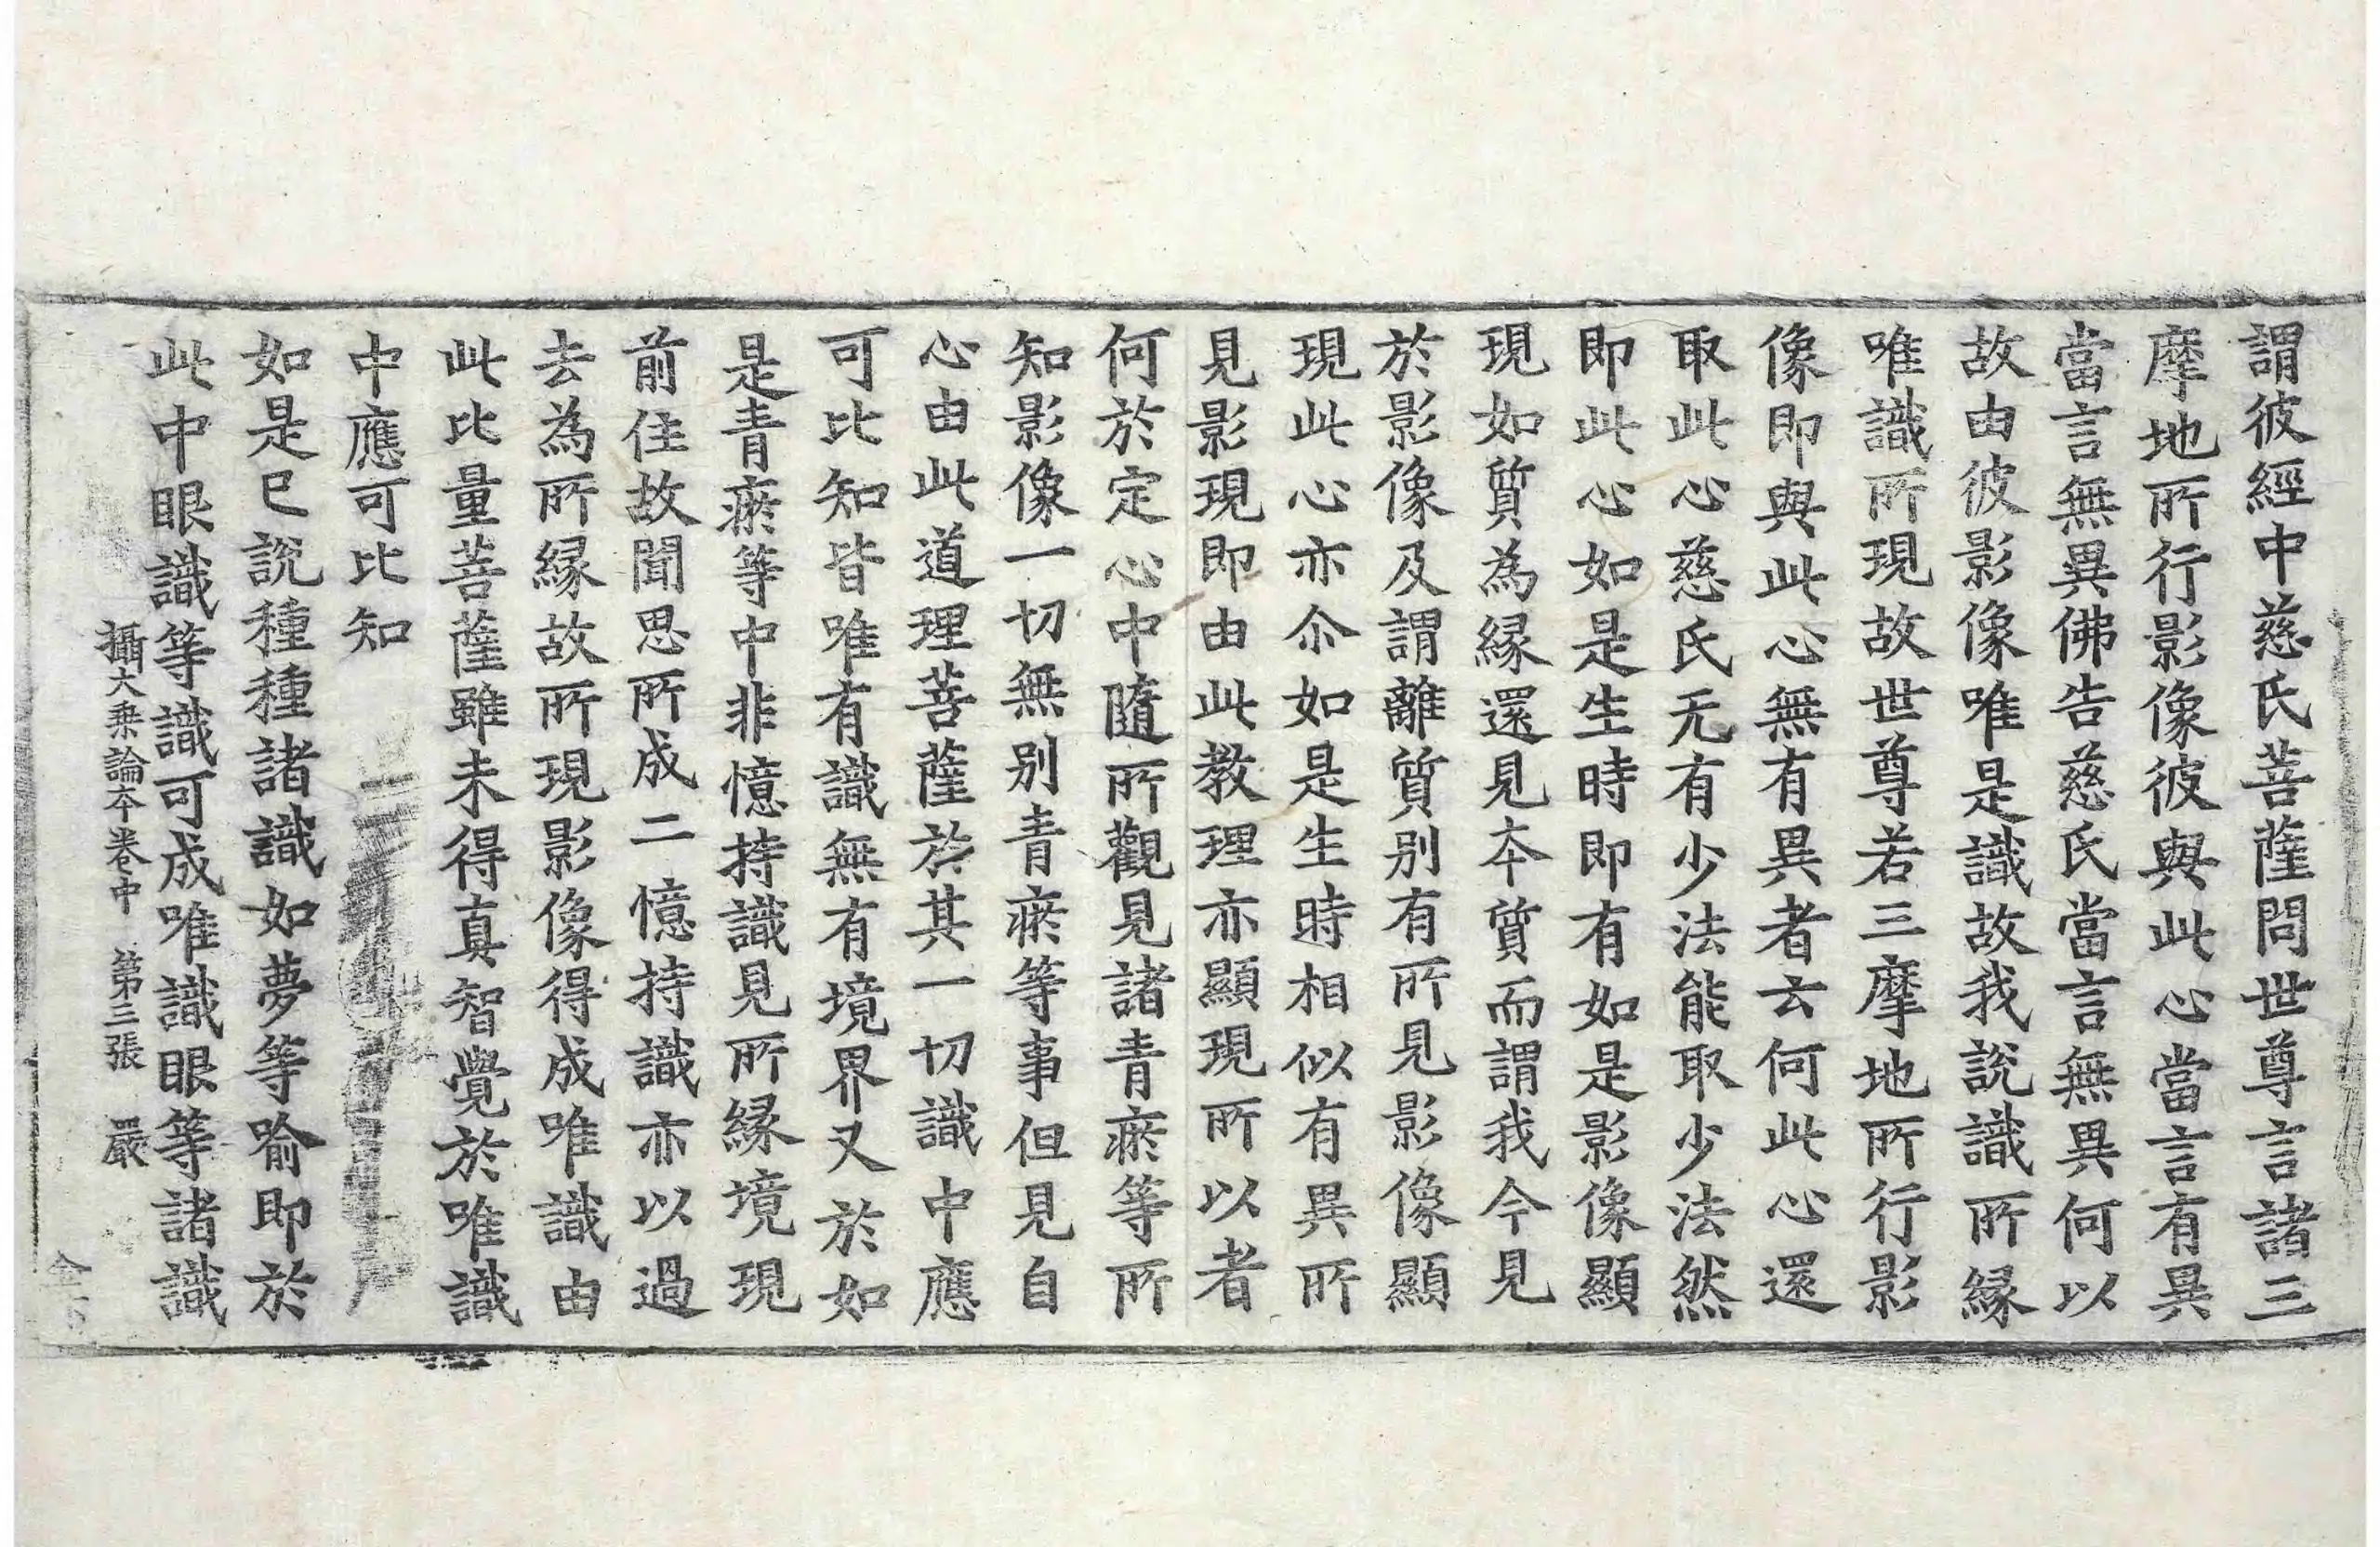 謂彼經中慈氏菩薩問世尊言諸三
摩地所行影像彼與此心當言有異
當言無異佛告慈氏當言無異何以
故由彼影像唯是識故我說識所緣
唯識所現故世尊若三摩地所行影
像即與此心無有異者云何此心還
取此心慈氏无有少法能取少法然
即此心如是生時即有如是影像顯
現如質為緣還見本質而謂我今見
於影像及謂離質別有所見影像顯
現此心亦尒如是生時相似有異所
見影現即由此教理亦顯現所以者
何於定心中隨所觀見諸青瘀等所
知影像一切無別青瘀等事但見自
心由此道理菩薩於其一切識中應
可比知皆唯有識無有境界又於如
是青瘀等中非憶持識見所緣境現
前住故聞思所成二憶持識亦以過
去為所緣故所現影像得成唯識由
此比量菩薩雖未得真智覺於唯識
中應可比知
如是已說種種諸識如夢等喻即於
此中眼識等識可成唯識眼等諸識
攝大乘論本卷中 第三張 嚴